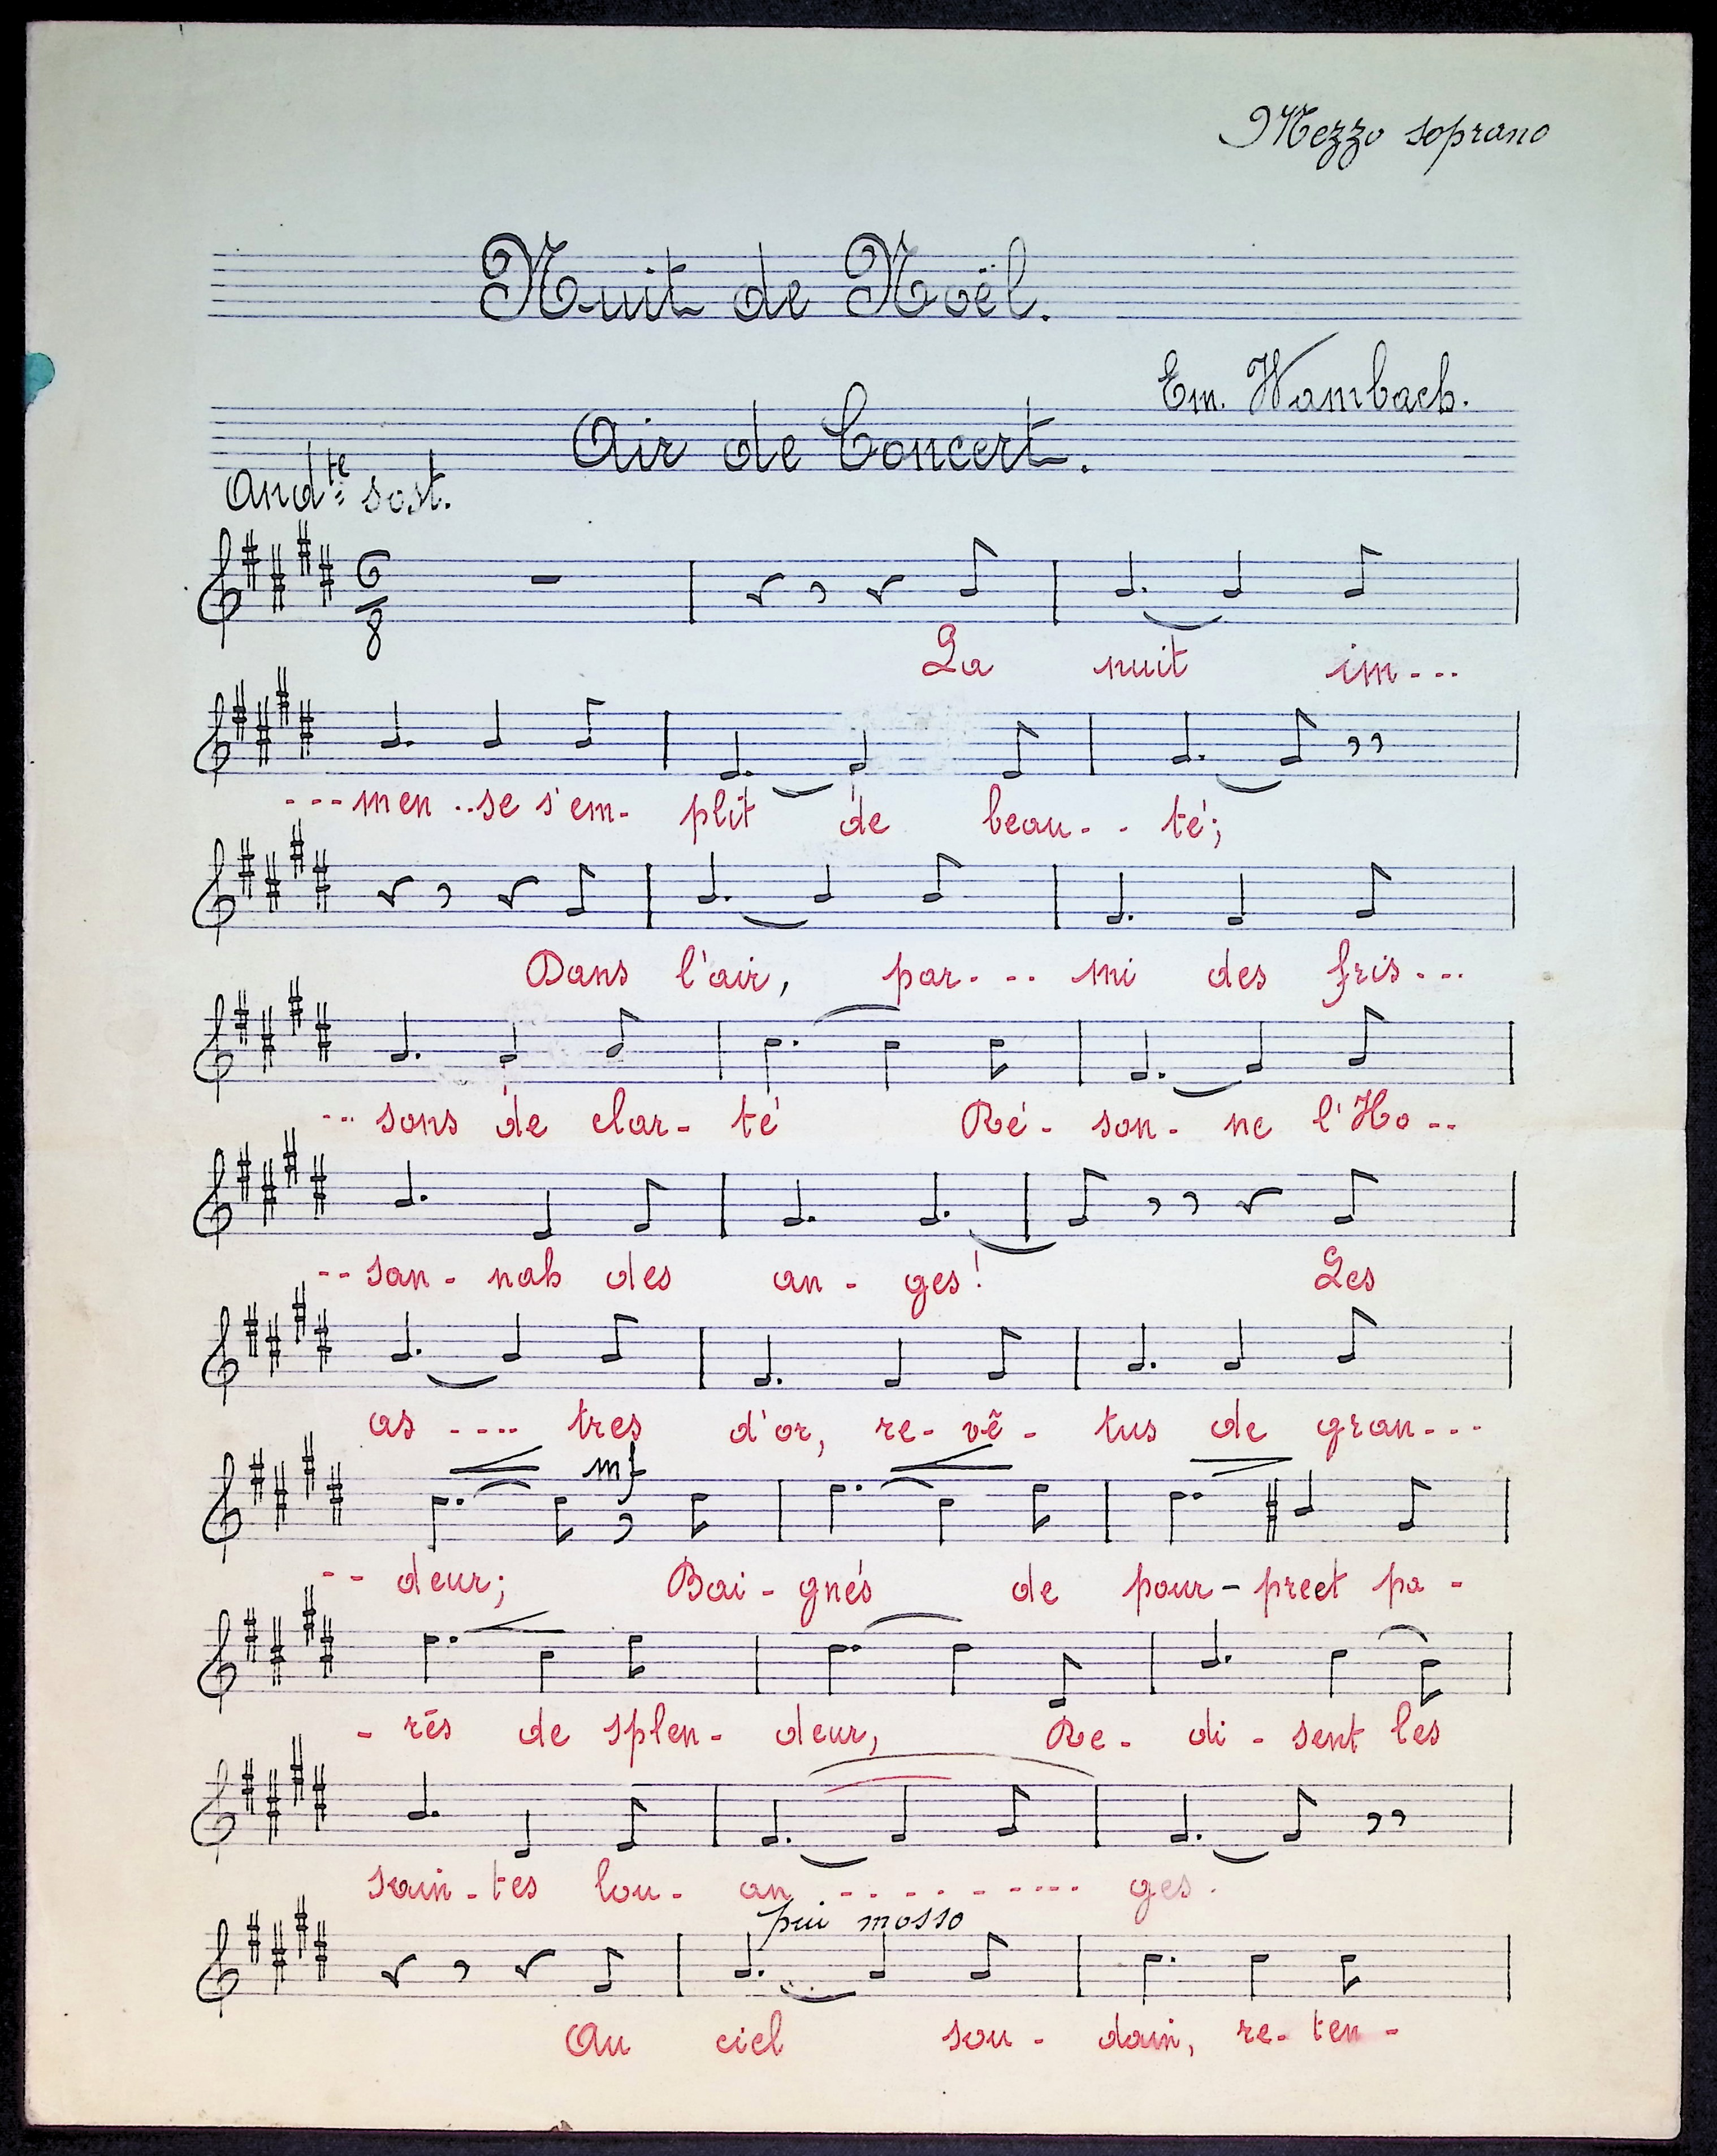 Mezzo soprano
Nuit de Noël.
Em. Wambach.
Air de Concert.
And.te sost.
6
8
La nuit im---
---men..se s'em- plit de beau-- té;
Dans l'air, par--- mi des fris---
--- sons de clar- té Ré- son- ne l'Ho--
--san- nah des an- ges! Les
as ---- tres d'or, re- vê- tus de gran---
mf
-- deur; Bai- gnés de pour- preet pa-
- rés de splen- deur, Re- di- sent les
sain-tes lou- an --------- ges.
piu mosso
Au ciel sou- dain, re- ten-